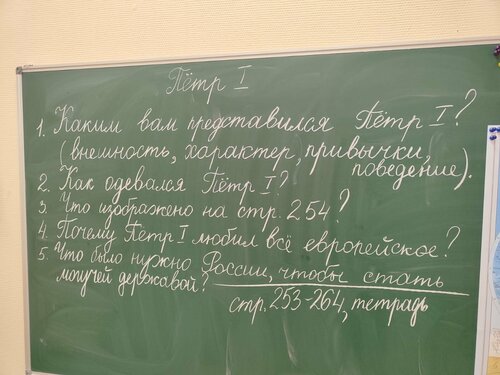 Пётр I
1. Каким вам представился Пётр I?
(внешность, характер, привычки,
поведение).
2. Как одевался Пётр I?
3. Что изображено на стр. 254?
4. Почему Пётр I любил всё европейское?
5. Что было нужно России, чтобы стать
могучей державой?
стр. 253-264, тетрадь